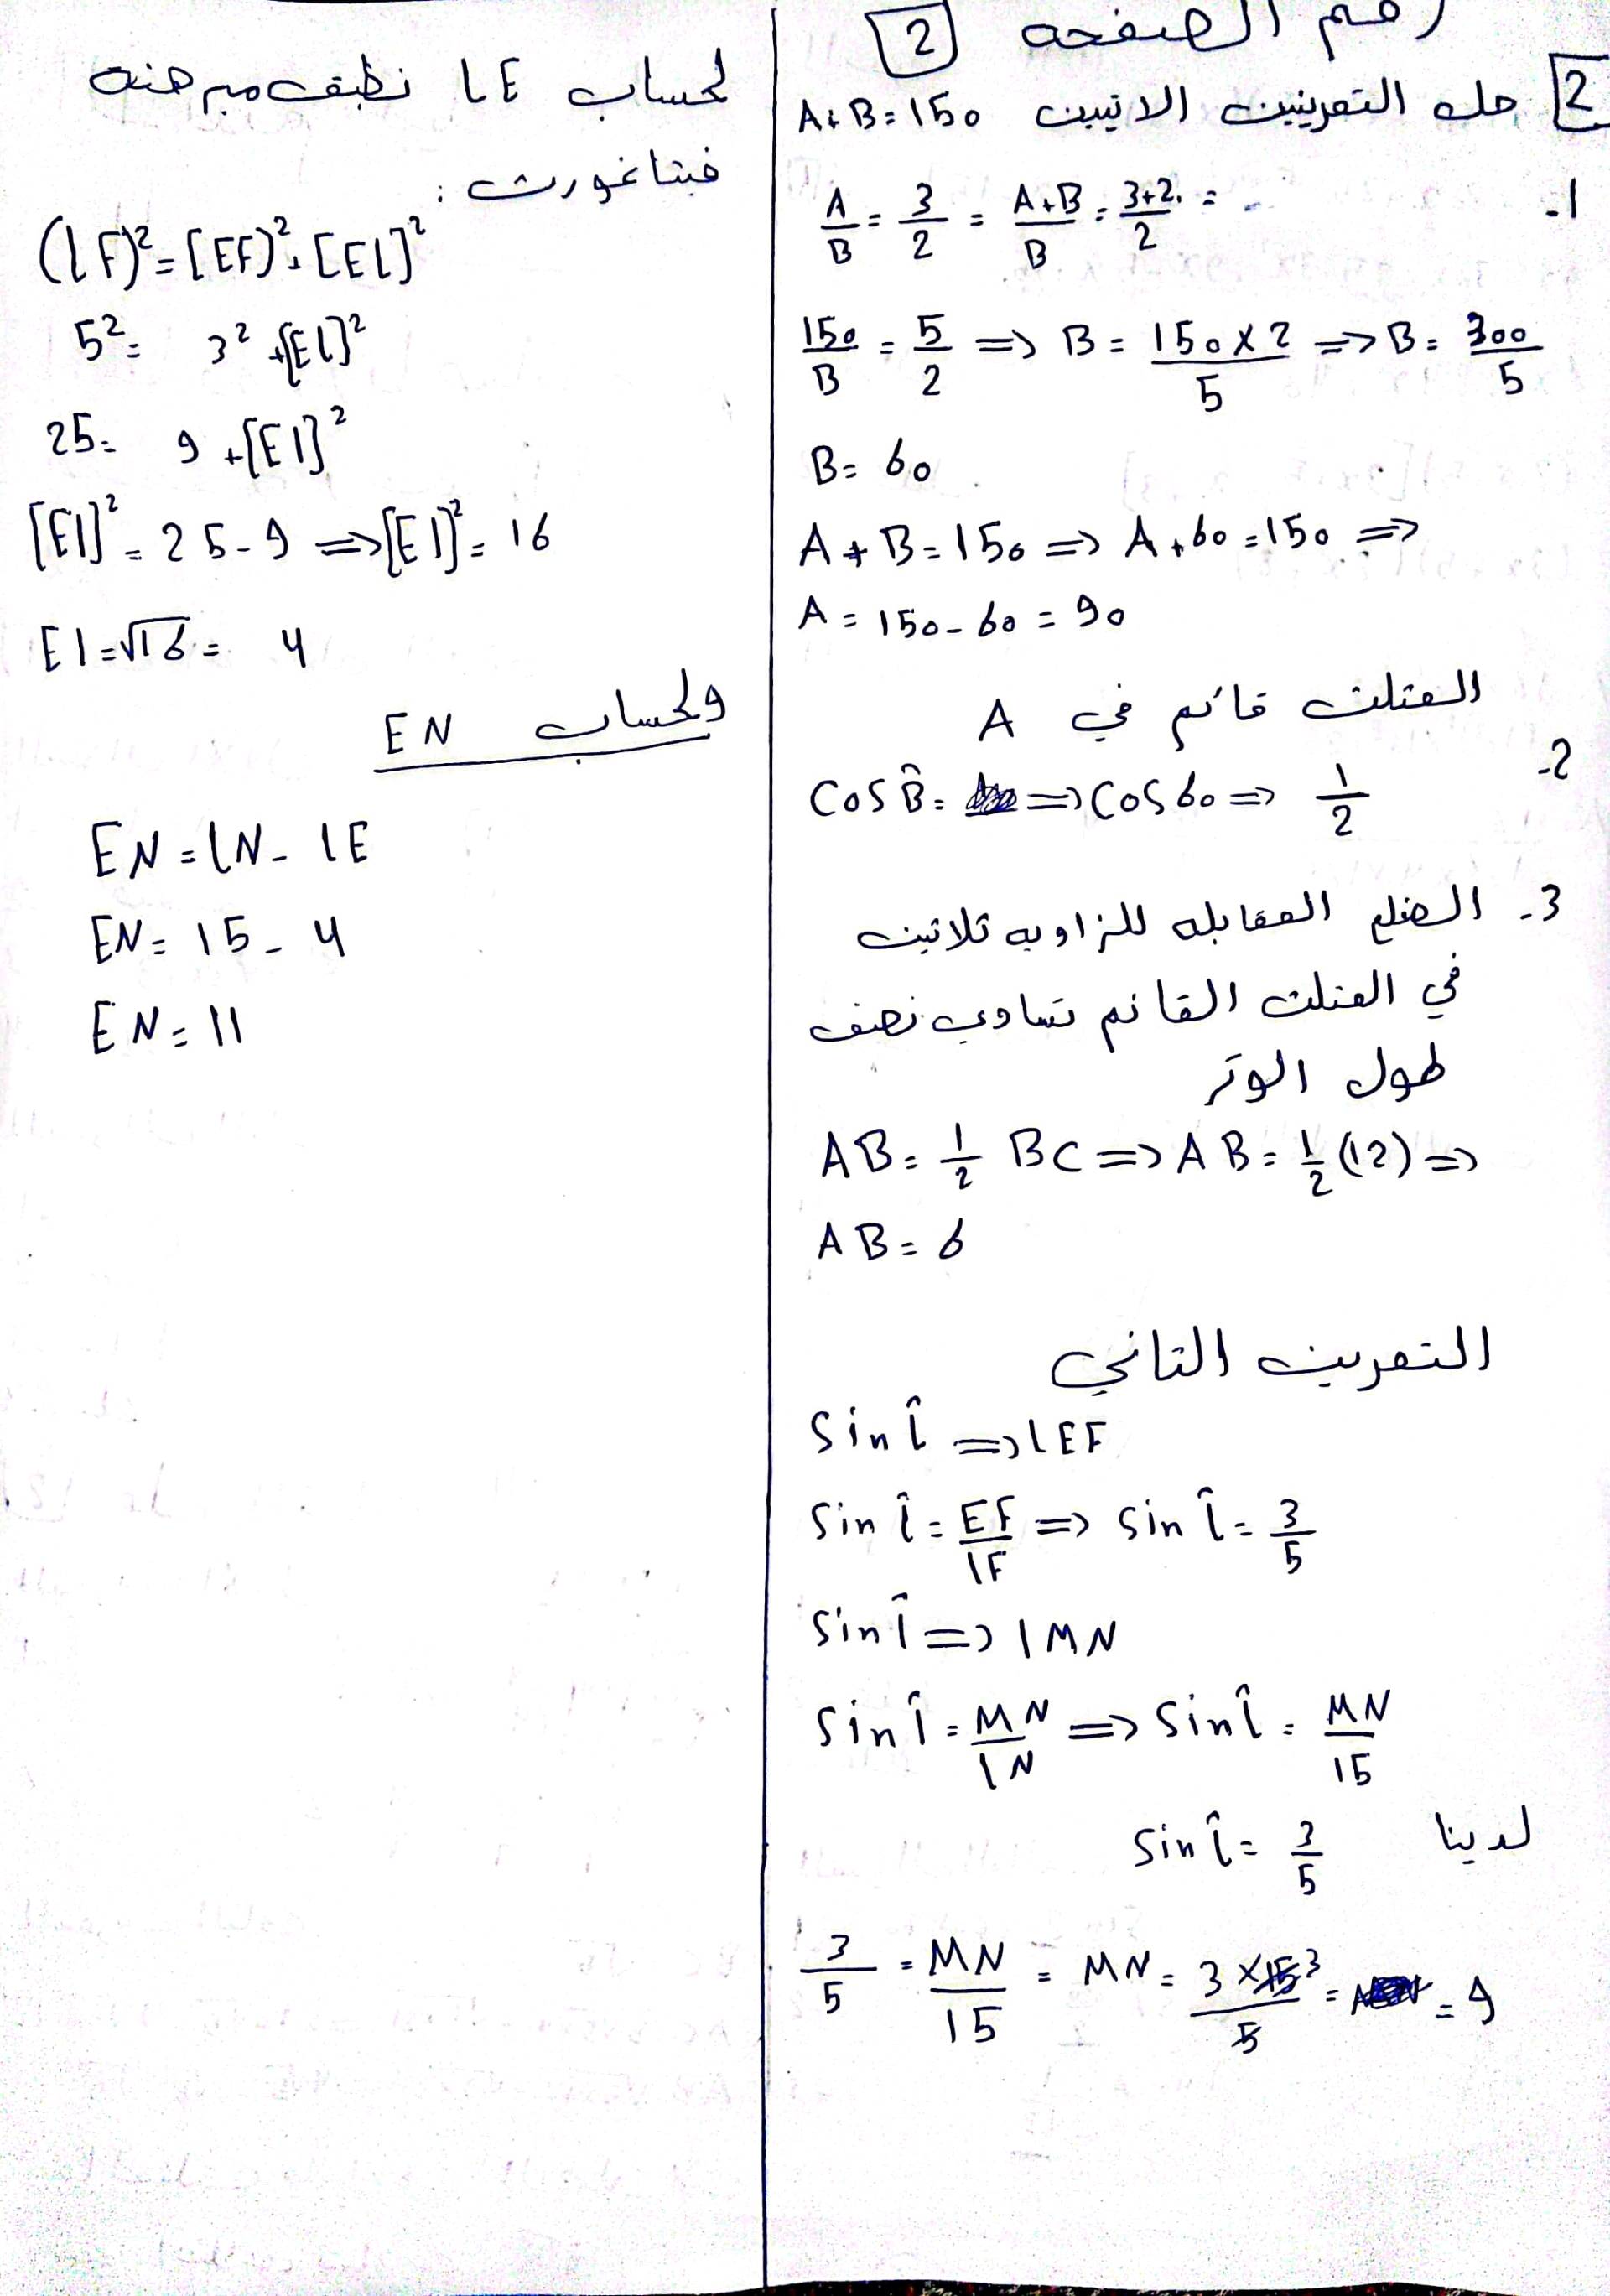 رقم الصفحه 2
2 حل التمرينين الاتيين A+B=150
1- A/B = 3/2 = A+B/B = 3+2/2 =
150/B = 5/2 => B = 150×2/5 => B = 300/5
B = 60
A + B = 150 => A + 60 = 150 =>
A = 150 - 60 = 90
المتلت قائم في A
2- Cos B̂ = => Cos 60 => 1/2
3- الضلع المقابله للزاويه تلاتين
في المتلت القائم تساوي نصف
طول الوتر
AB = 1/2 BC => AB = 1/2 (12) =>
AB = 6
التمرين التاني
Sin Î => IEF
Sin Î = EF/IF => Sin Î = 3/5
Sin Î => IMN
Sin Î = MN/IN => Sin Î = MN/15
لدينا Sin Î = 3/5
3/5 = MN/15 = MN = 3×15 3/5 = = 9
لحساب IE نطبق مبرهنه
فيتاغورث :
(IF)² = [EF)² + [EI]²
5² = 3² + [EI]²
25 = 9 + [EI]²
[EI]² = 25 - 9 => [EI]² = 16
EI = √16 = 4
ولحساب EN
EN = IN - IE
EN = 15 - 4
EN = 11